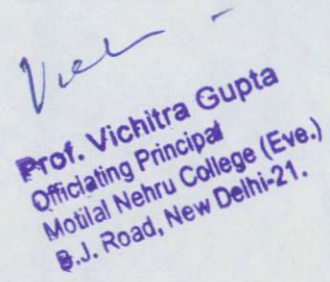 Prof. Vichitra Gupta
Officiating Principal
Motilal Nehru College (Eve.)
B.J. Road, New Delhi-21.